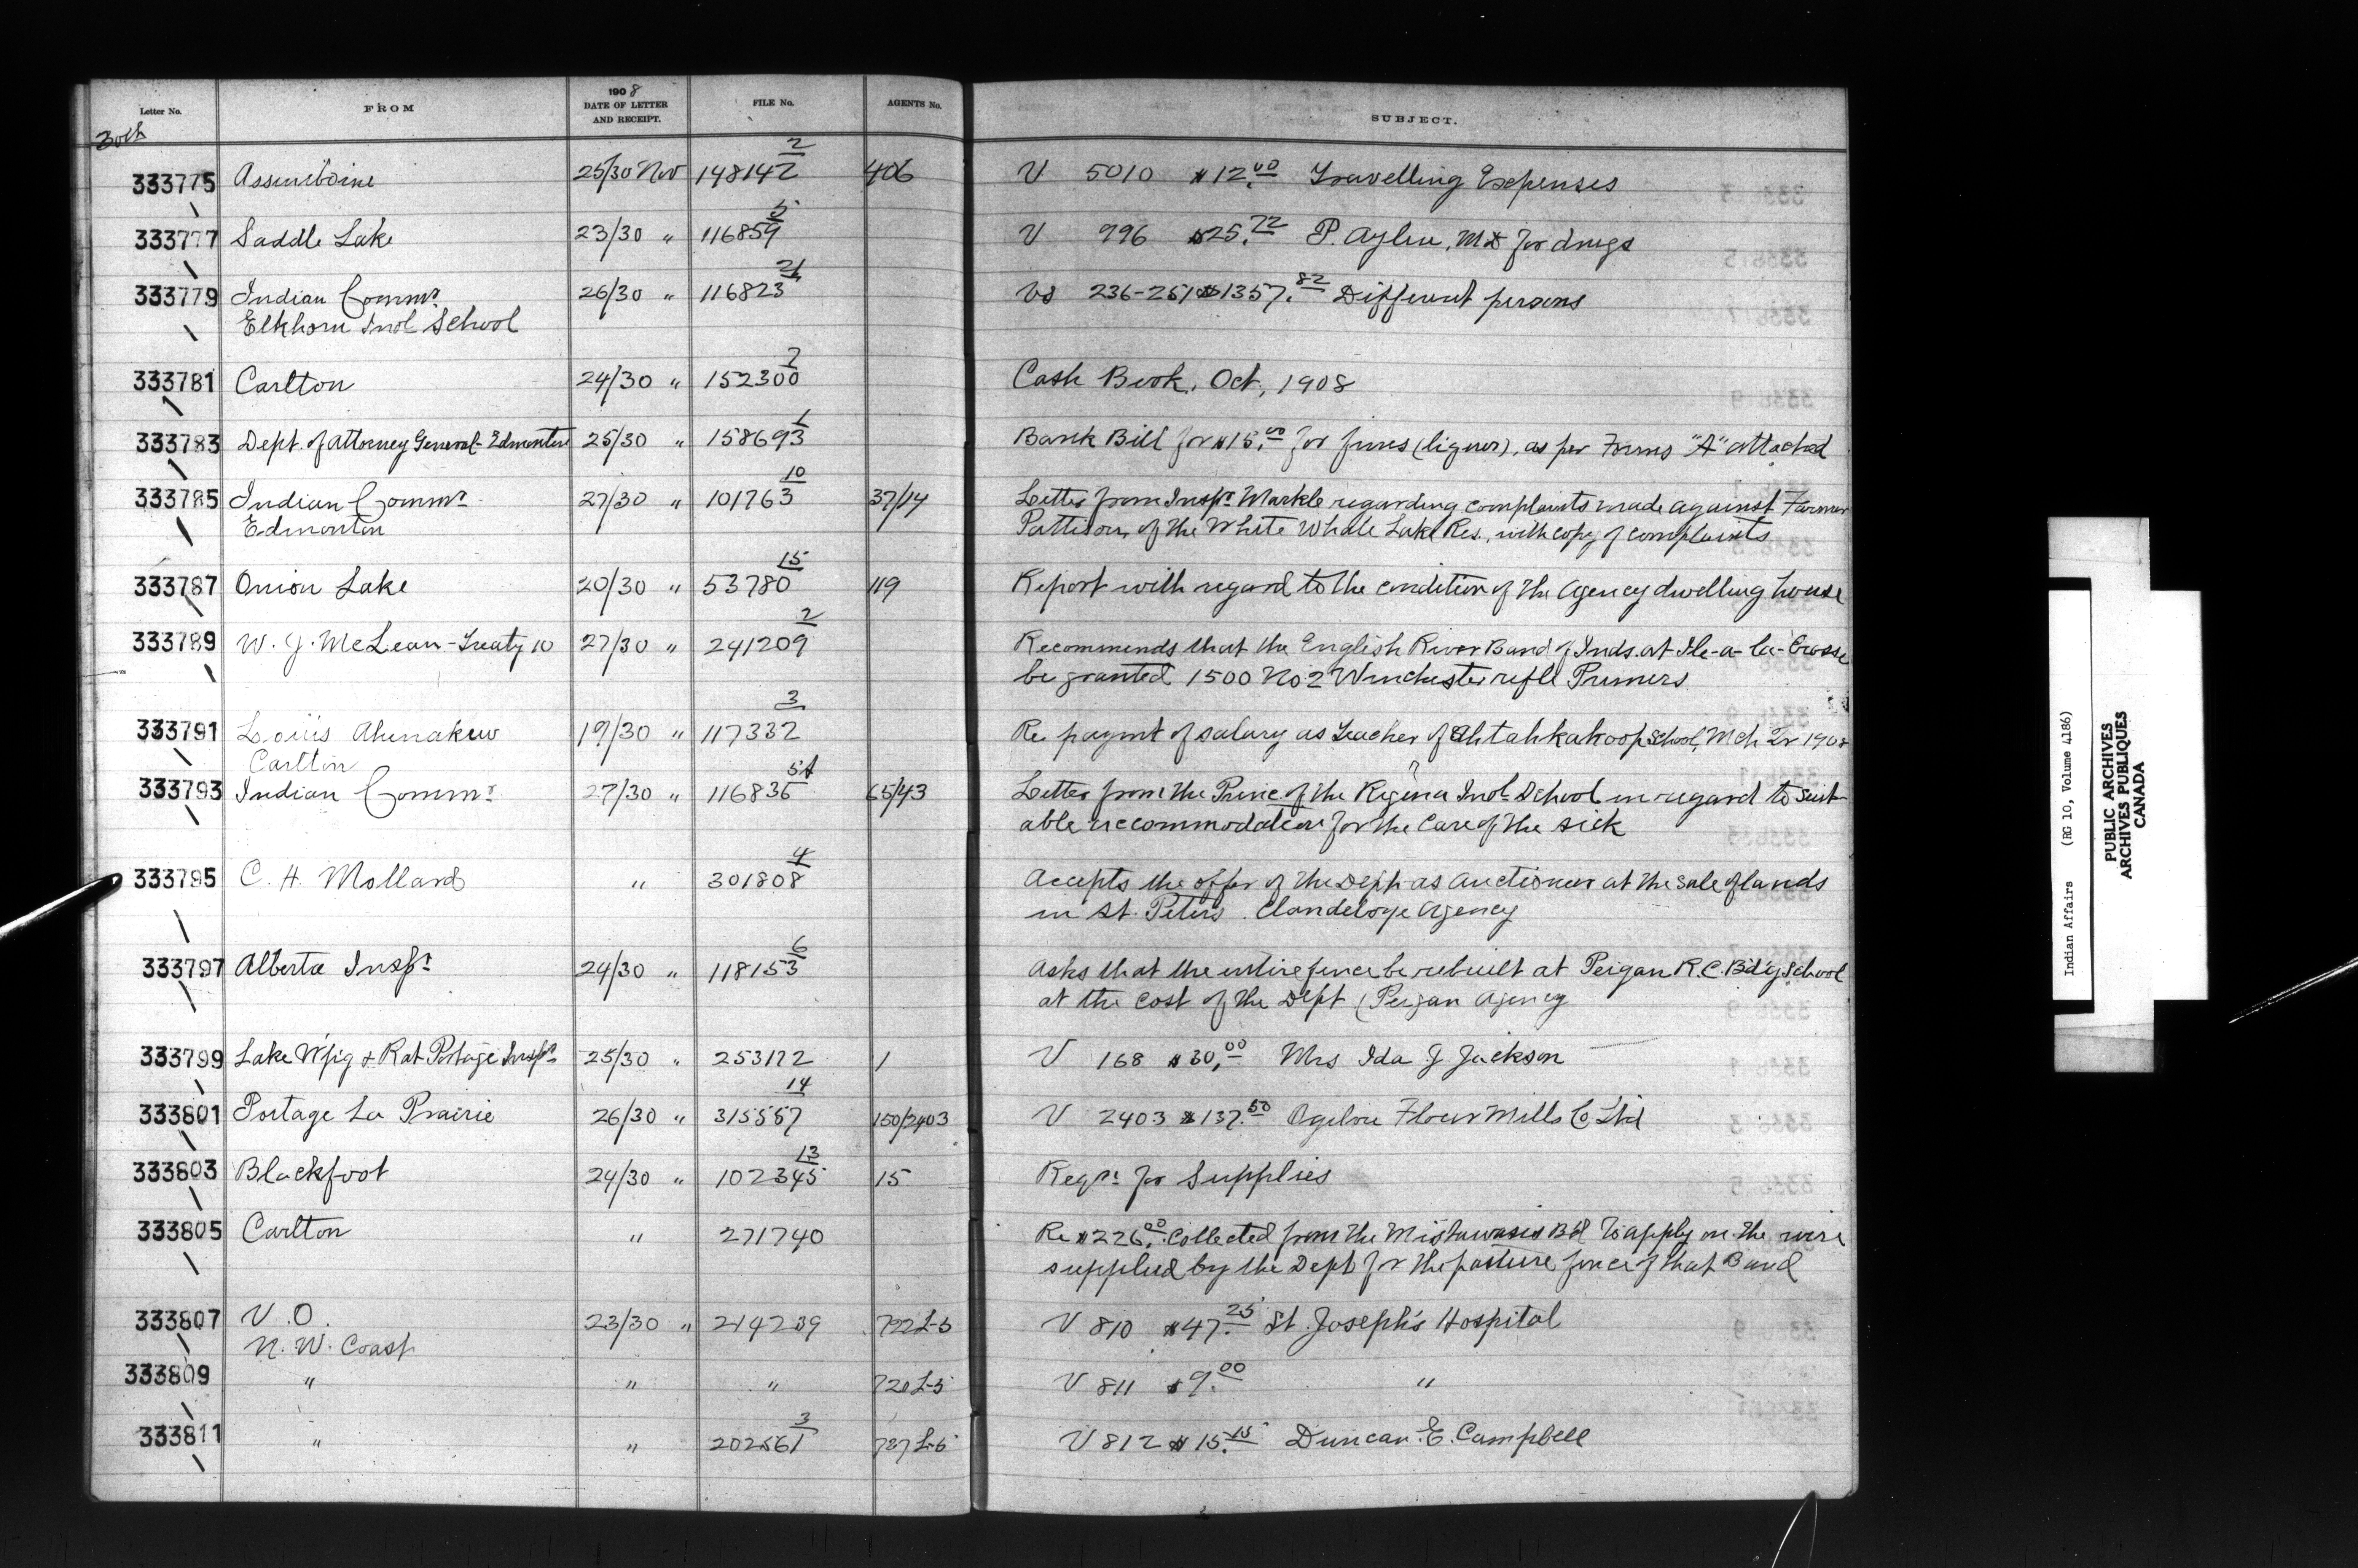 Letter No. FROM 1908 DATE OF LETTER AND RECEIPT. FILE No. AGENTS No. SUBJECT.
30th
333775 Assiniboine 25/30 Nov 148142 2 406 V 5010 $12.00 Travelling Expenses
333777 Saddle Lake 23/30 " 116859 5 V 996 $25.72 P. Aylen, MD for drugs
333779 Indian Commr. 26/30 " 116823 Vs 236-251 $1357.82 Different persons
Elkhorn Indl School
333781 Carlton 24/30 " 152300 2 Cash Book, Oct, 1908
333783 Dept. of Attorney General-Edmonton 25/30 " 158693 1 Bank Bill for $15.00 for fines (liquor), as per Forms "A" attached
333785 Indian Commr 27/30 " 101763 10 37/14 Letter from Inspr. Markle regarding complaints made against Farmer
Edmonton Pattison, of the White Whale Lake Res., with copy of complaints
333787 Onion Lake 20/30 " 53780 15 119 Report with regard to the condition of the Agency dwelling house
333789 W. J. McLean-Treaty 10 27/30 " 241209 2 Recommends that the English River Band of Inds. at Ile-a-la-Crosse
be granted 1500 No 2 Winchester rifle Primers
333791 Louis Ahenakew 19/30 " 117332 3 Re paymt of salary as Teacher of Ahtahkakoop School, Mch Qr 1908
Carlton
333793 Indian Commr 27/30 " 116836 5A 65/43 Letter from the Princ. of the Regina Indl School in regard to suit-
able accommodation for the care of the sick
333795 C. H. Mollard " 301808 4 Accepts the offer of the Dept as Auctioneer at the sale of lands
in St. Peters. Clandeboye Agency
333797 Alberta Inspr 24/30 " 118153 6 Asks that the entire fence be rebuilt at Peigan R.C. Bd'g School
at the cost of the Dept (Peigan Agency
333799 Lake W'pig & Rat Portage Inspr. 25/30 " 253172 1 V 168 $30.00 Mrs Ida J Jackson
333801 Portage La Prairie 26/30 " 315557 14 150/2403 V 2403 $137.50 Ogilvie Flour Mills Co Ltd
333803 Blackfoot 24/30 " 102345 13 15 Reqn. for Supplies
333805 Carlton " 271740 Re $226.00 collected from the Mistawasis B'd to apply on the wire
supplied by the Dept for the pasture fence of that Band
333807 V. O. 23/30 " 214239 722 L-5 V 810 $47.25 St. Joseph's Hospital
N. W. Coast
333809 " " " 720 L-5 V 811 $9.00 "
333811 " " 202561 3 727 L-5 V 812 $15.15 Duncan E. Campbell
Indian Affairs (RG 10, Volume 4186)
PUBLIC ARCHIVES
ARCHIVES PUBLIQUES
CANADA